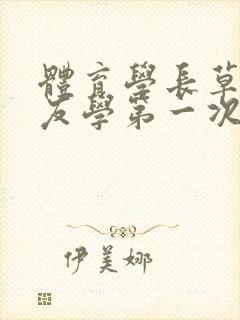 體育學長草
友學第一次
伊美娜